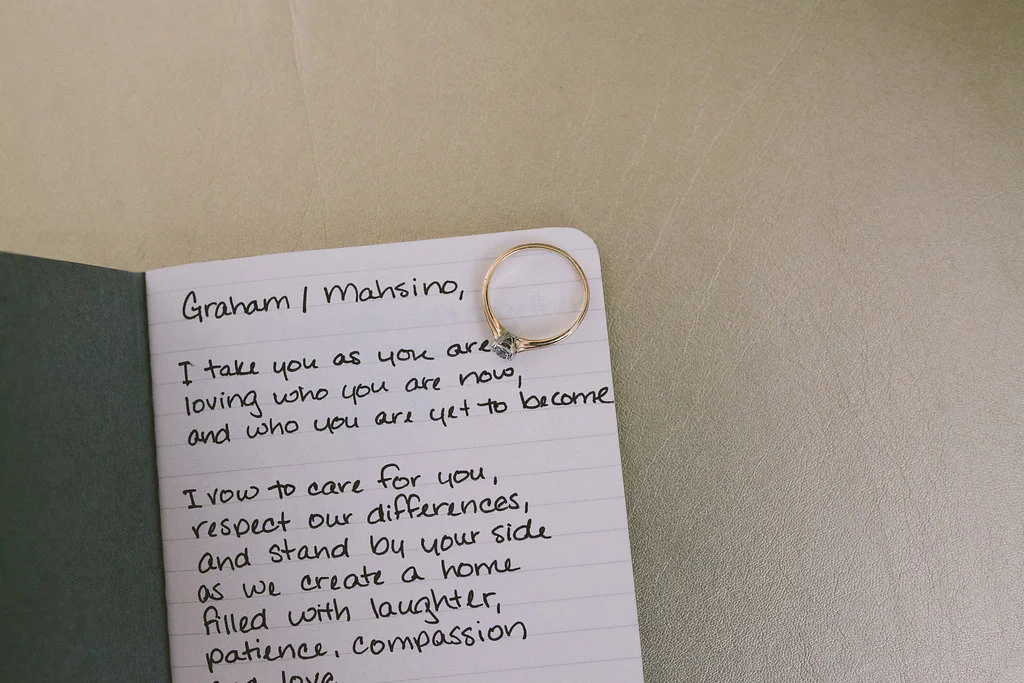 Graham / Mahsino,
I take you as you are
loving who you are now,
and who you are yet to become
I vow to care for you,
respect our differences,
and stand by your side
as we create a home
filled with laughter,
patience, compassion
love